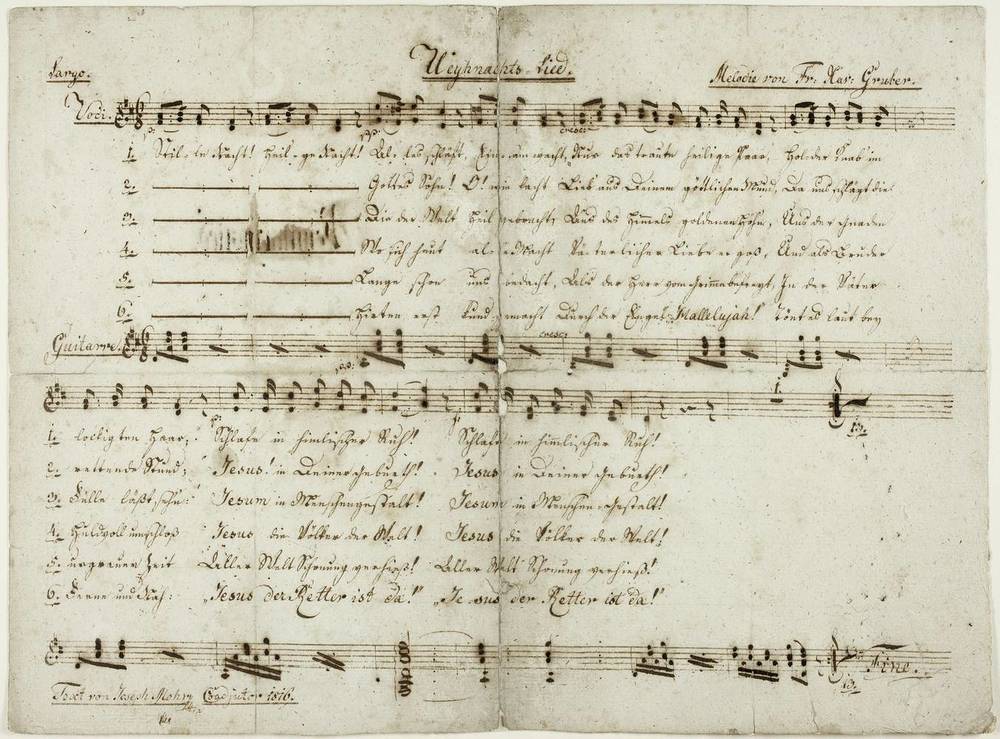 Weyhnachts-Lied.
Largo.
Melodie von Fr: Xav: Gruber.
Voci.
p:
pp:
cresc:
1. Stil-le Nacht! Heil-ge Nacht! Al-les schläft, Eins-am wacht, Nur das traute heilige Paar, Hol-der Knab' im
2. Gottes Sohn! O! wie lacht Lieb' aus Deinem göttlichen Mund, Da uns schlägt die
3. Die der Welt Heil gebracht: Aus des Himmels goldenen Höhn, Uns der Gnaden
4. Wo sich heut all Macht Väterlicher Liebe ergoß, Und als Bruder
5. Lange schon uns bedacht, Als der Herr vom Grimme befreyt, In der Väter
6. Hirten erst kundgemacht Durch der Engel Hallelujah! Tönt es laut bey
Guitarre.
cresc:
pp:
p:
p:
1. lockigten Haar; Schlafe in himlischer Ruh! Schlafe in himmlischer Ruh!
2. rettende Stund; Jesus! in Deiner Geburth! Jesus in Deiner Geburth!
3. Fülle läßt sehn: Jesum in Menschengestalt! Jesum in Menschen-Gestalt!
4. Huldvoll umschloß Jesus die Völker der Welt! Jesus die Völker der Welt!
5. urgrauer Zeit Aller Welt Schonung verhieß! Aller Welt Schonung verhieß!
6. Ferne und Nah: "Jesus der Retter ist da!" "Jesus der Retter ist da!"
Fine.
Text von Joseph Mohr Coadjutor 1816.